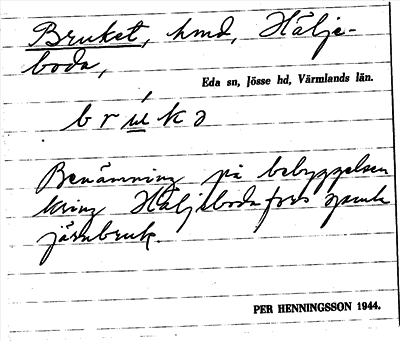 Bruket, hmd, Hälje-
boda,
Eda sn, Jösse hd, Värmlands län.
brúkə
Benämning på bebyggelsen
kring Häljeboda förs gamla
järnbruk.
PER HENNINGSSON 1944.